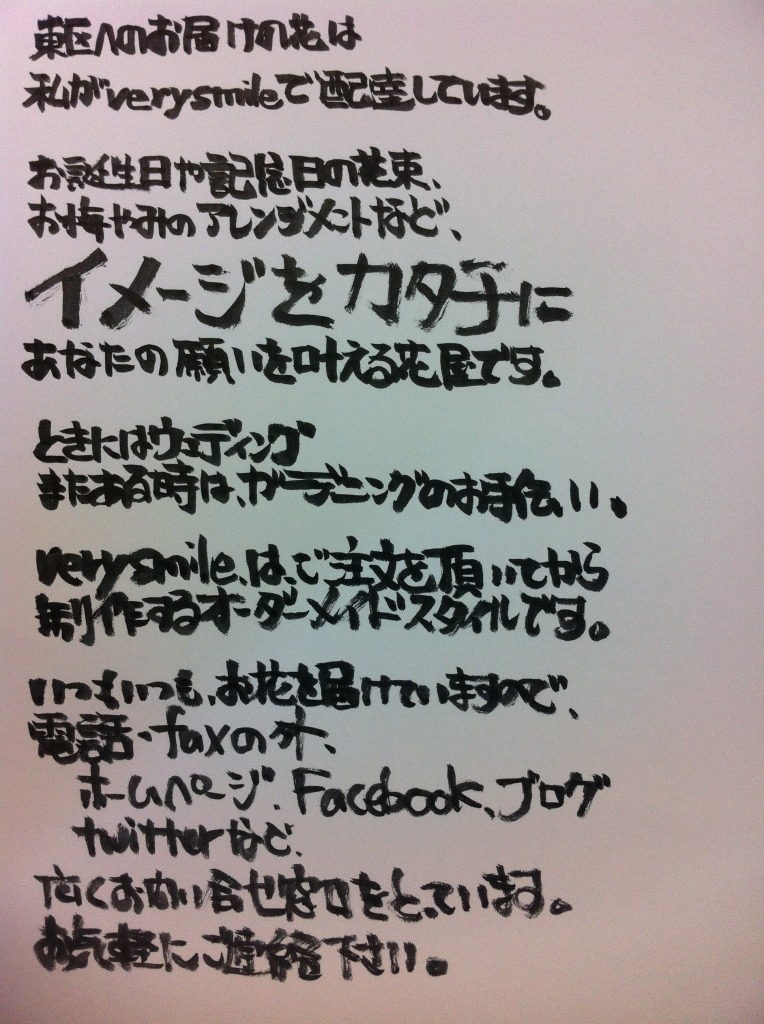 東区へのお届けの花は
私がverysmileで配達しています。
お誕生日や記念日の花束、
お悔やみのアレンジメントなど、
イメージをカタチに
あなたの願いを叶える花屋です。
ときにはウェディング
またある時は、ガーデニングのお手伝い。
verysmile、は、ご注文を頂いてから
制作するオーダーメイドスタイルです。
いつもいつも、お花を届けていますので、
電話・faxの外、
ホームページ、Facebook、ブログ
twitterなど、
広くお問い合せ窓口をとっています。
お気軽にご連絡下さい。